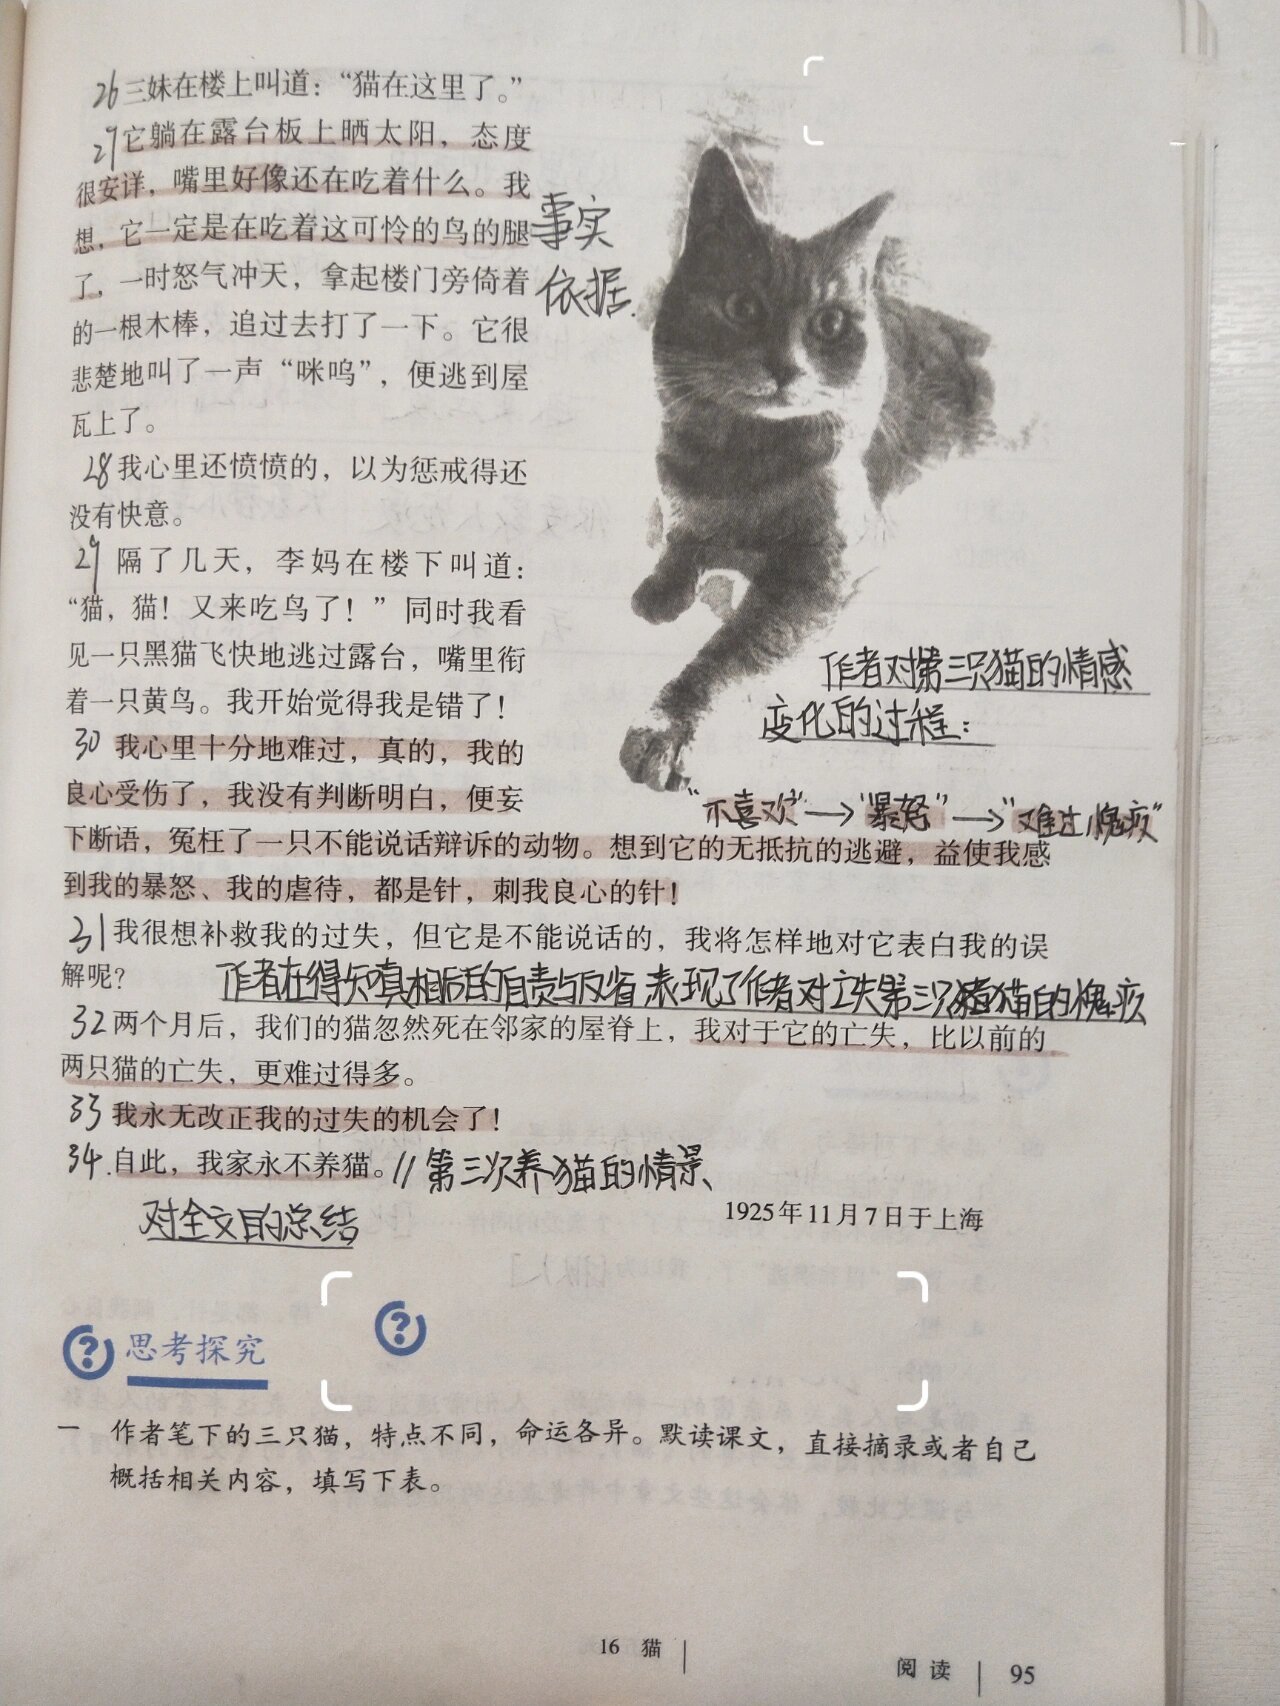 26 三妹在楼上叫道：“猫在这里了。”
27 它躺在露台板上晒太阳，态度
很安详，嘴里好像还在吃着什么。我
想，它一定是在吃着这可怜的鸟的腿
了，一时怒气冲天，拿起楼门旁倚着
的一根木棒，追过去打了一下。它很
悲楚地叫了一声“咪呜”，便逃到屋
瓦上了。
事实
依据.
28 我心里还愤愤的，以为惩戒得还
没有快意。
29 隔了几天，李妈在楼下叫道：
“猫，猫！又来吃鸟了！”同时我看
见一只黑猫飞快地逃过露台，嘴里衔
着一只黄鸟。我开始觉得我是错了！
作者对第三只猫的情感
变化的过程：
“不喜欢”→“暴怒”→“难过，愧疚”
30 我心里十分地难过，真的，我的
良心受伤了，我没有判断明白，便妄
下断语，冤枉了一只不能说话辩诉的动物。想到它的无抵抗的逃避，益使我感
到我的暴怒、我的虐待，都是针，刺我良心的针！
31 我很想补救我的过失，但它是不能说话的，我将怎样地对它表白我的误
解呢？
作者在得知真相后的自责与反省，表现了作者对亡失第三只猫的愧疚
32 两个月后，我们的猫忽然死在邻家的屋脊上，我对于它的亡失，比以前的
两只猫的亡失，更难过得多。
33 我永无改正我的过失的机会了！
34. 自此，我家永不养猫。// 第三次养猫的情景、
对全文的总结
1925年11月7日于上海
思考探究
一 作者笔下的三只猫，特点不同，命运各异。默读课文，直接摘录或者自己
概括相关内容，填写下表。
16 猫
阅读 95